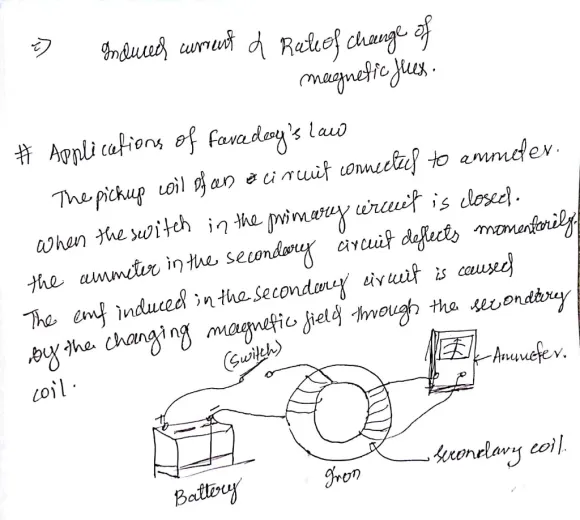 ⇒ Induced current α Rate of change of
magnetic flux.
# Applications of Faraday's law
The pickup coil of an circuit connected to ammeter.
When the switch in the primary circuit is closed.
the ammeter in the secondary circuit deflects momentarily.
The emf induced in the secondary circuit is caused
by the changing magnetic field through the secondary
coil.
(Switch)
Ammeter.
+ -
secondary coil.
Iron
Battery